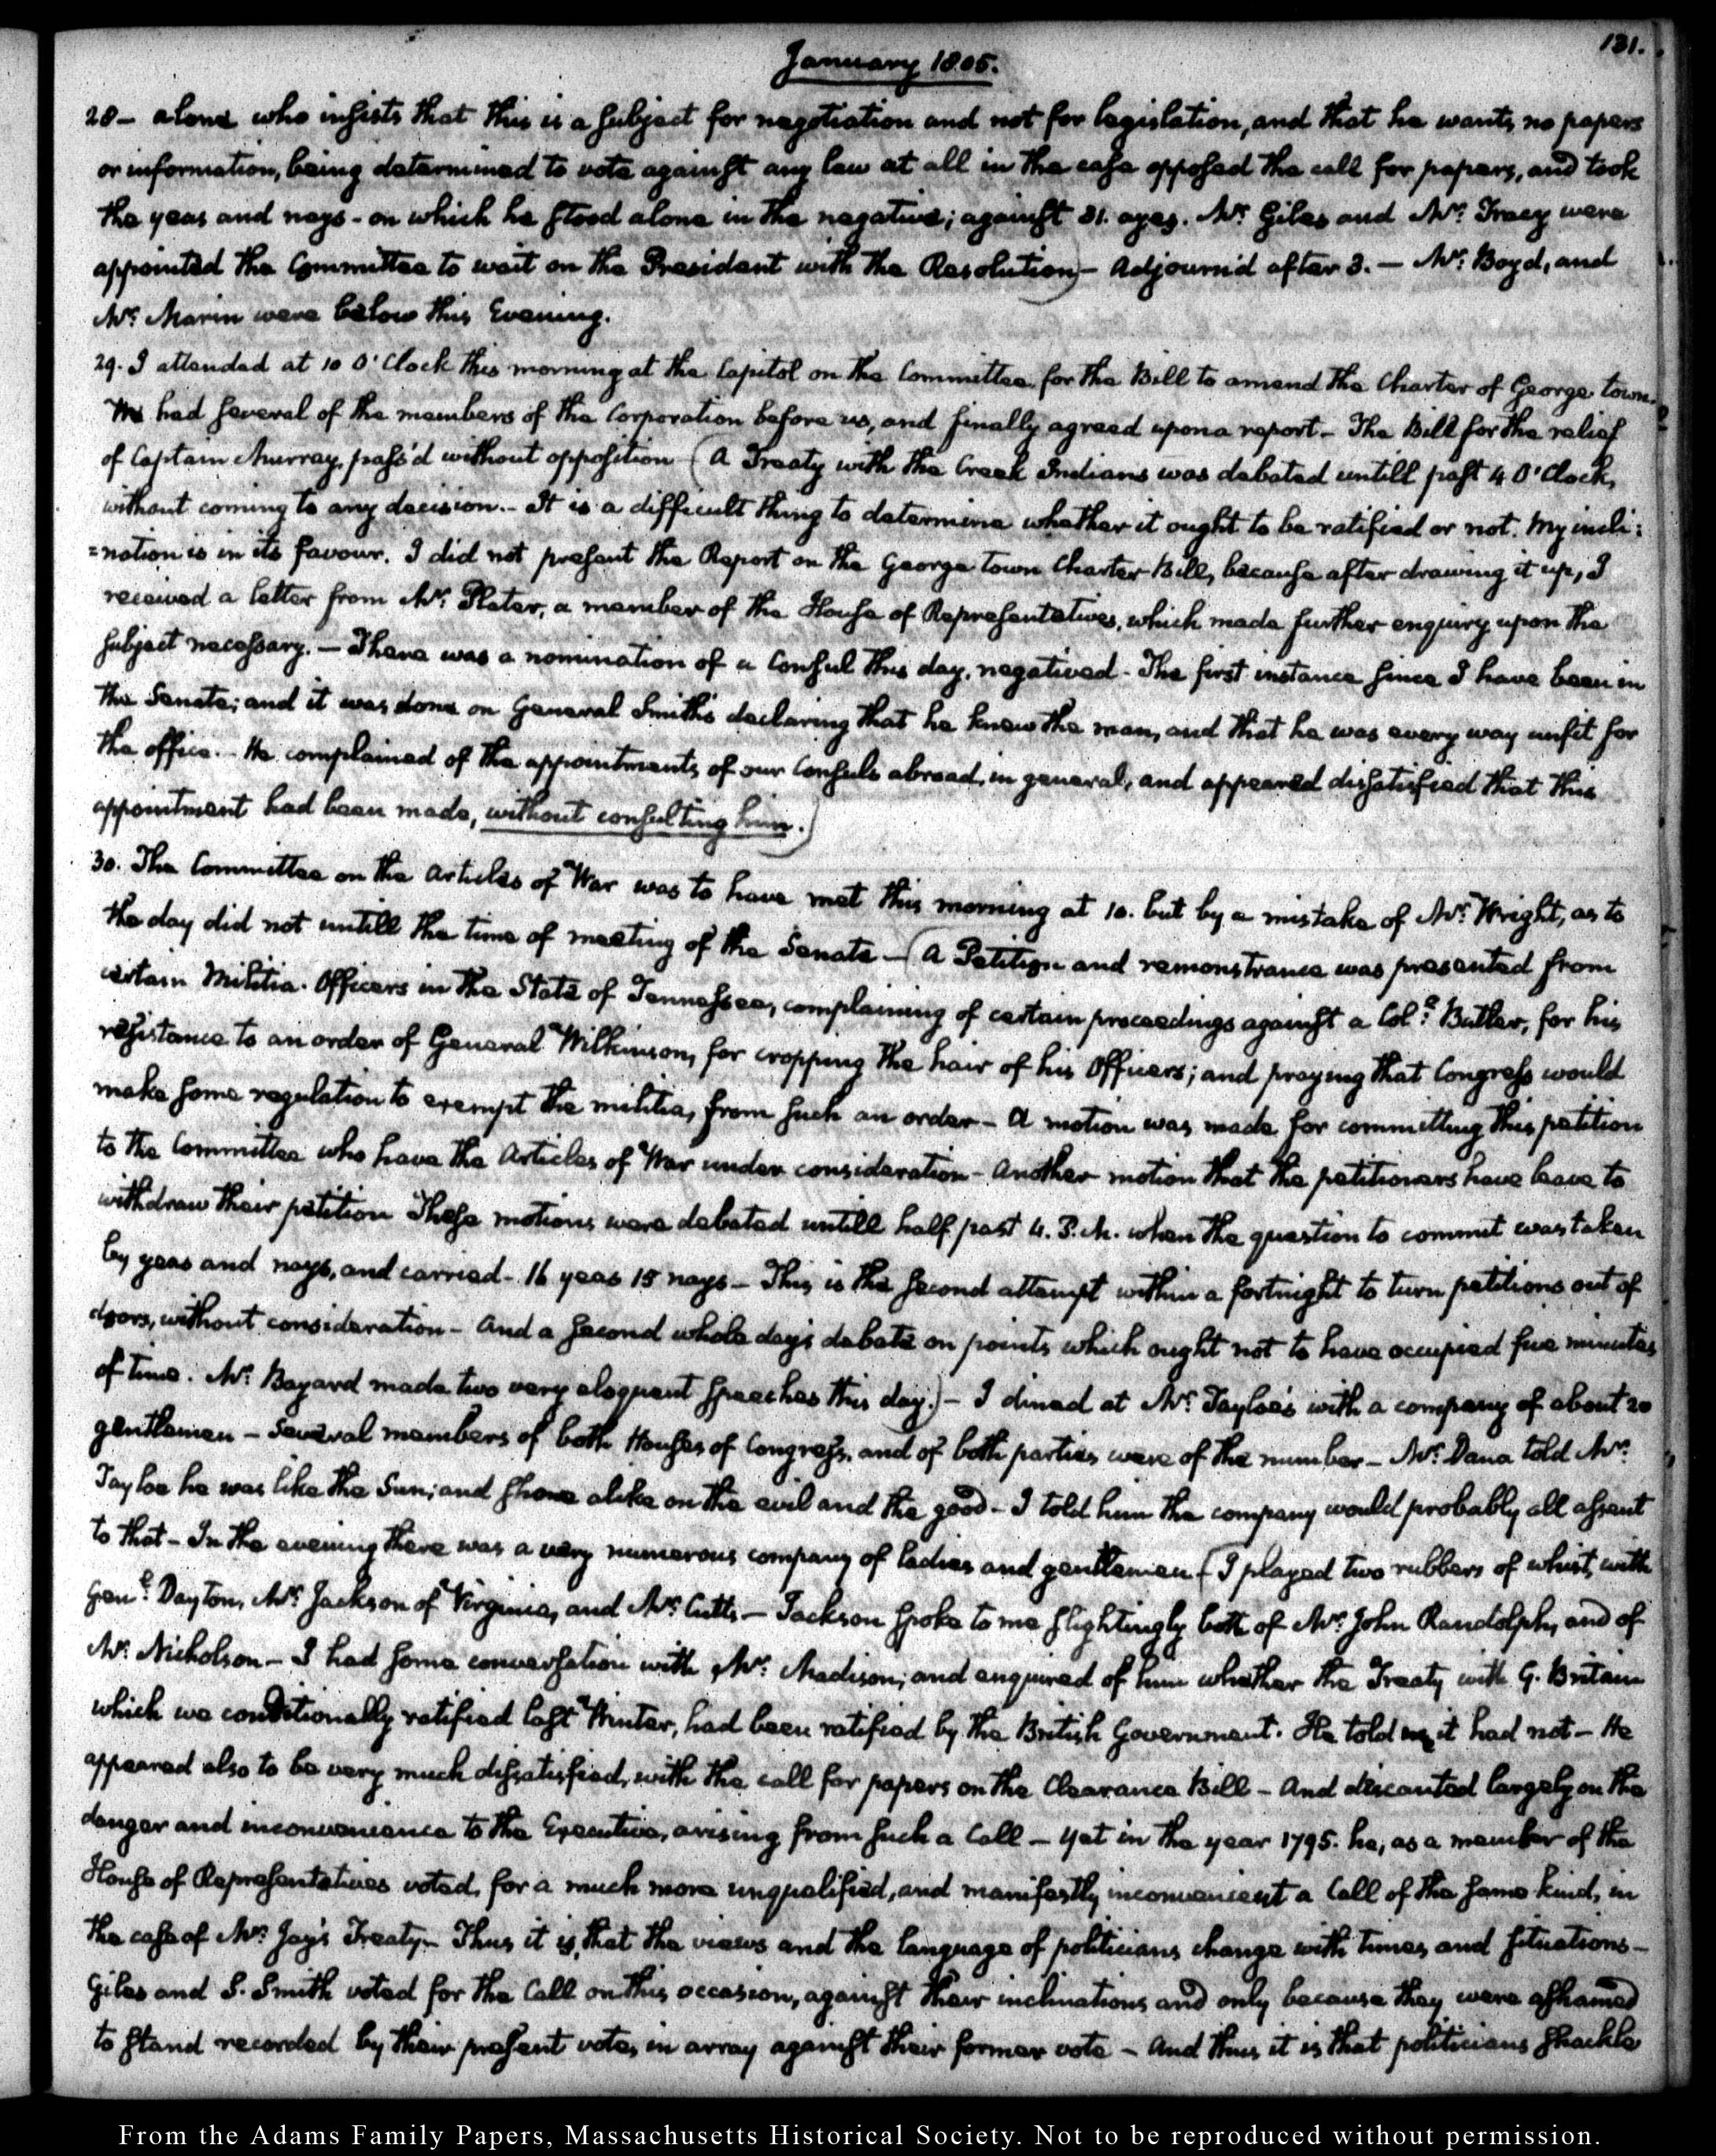 131.
January 1805.
28 - alone who insists that this is a subject for negotiation and not for legislation, and that he wants, no papers
or information, being determined to vote against any law at all in the case opposed the call for papers, and took
the yeas and nays - on which he stood alone in the negative; against 31. ayes. Mr: Giles and Mr: Tracy were
appointed the Committee to wait on the President with the Resolution) - Adjourn'd after 3. - Mr: Boyd, and
Mr: Marin were below this Evening.
29. I attended at 10 O'Clock this morning at the Capitol on the Committee for the Bill to amend the Charter of George town.
We had several of the members of the Corporation before us, and finally agreed upon a report - The Bill for the relief
of Captain Murray, pass'd without opposition (A Treaty with the Creek Indians was debated untill past 4 O'Clock,
without coming to any decision. - It is a difficult thing to determine whether it ought to be ratified or not. My incli:
=nation is in its favour. I did not present the Report on the George town Charter Bill, because after drawing it up, I
received a letter from Mr: Plater, a member of the House of Representatives, which made further enquiry upon the
subject necessary. - There was a nomination of a Consul this day, negatived - The first instance since I have been in
the Senate; and it was done on General Smith's declaring that he knew the man, and that he was every way unfit for
the office. - He complained of the appointments of our Consuls abroad, in general, and appeared dissatisfied that this
appointment had been made, without consulting him.)
30. The Committee on the Articles of War was to have met this morning at 10. but by a mistake of Mr: Wright, as to
the day did not untill the time of meeting of the Senate - (A Petition and remonstrance was presented from
certain Militia Officers in the State of Tennessee, complaining of certain proceedings against a Coll: Butler, for his
resistance to an order of General Wilkinson, for cropping the hair of his Officers; and praying that Congress would
make some regulation to exempt the militia, from such an order - A motion was made for committing this petition
to the Committee who have the Articles of War under consideration - Another motion that the petitioners have leave to
withdraw their petition These motions were debated untill half past 4. P.M. when the question to commit was taken
by yeas and nays, and carried - 16 yeas 15 nays - This is the second attempt within a fortnight to turn petitions out of
doors, without consideration - And a second whole day's debate on points which ought not to have occupied five minutes
of time. Mr: Bayard made two very eloquent speeches this day.) - I dined at Mr: Tayloe's with a company of about 20
gentlemen - Several members of both Houses of Congress, and of both parties were of the number - Mr: Dana told Mr:
Tayloe he was like the Sun; and shone alike on the evil and the good - I told him the company would probably all assent
to that - In the evening there was a very numerous company of ladies and gentlemen. (I played two rubbers of whist, with
Genl: Dayton, Mr: Jackson of Virginia, and Mr: Cutts - Jackson spoke to me slightingly both of Mr: John Randolph, and of
Mr: Nicholson - I had some conversation with Mr: Madison; and enquired of him whether the Treaty with G. Britain
which we conditionally ratified last Winter, had been ratified by the British Government. He told me it had not - He
appeared also to be very much dissatisfied, with the call for papers on the Clearance Bill - And descanted largely on the
danger and inconvenience to the Executive, arising from such a Call - Yet in the year 1795. he, as a member of the
House of Representatives voted, for a much more unqualified, and manifestly inconvenient a Call of the same kind, in
the case of Mr: Jay's Treaty - Thus it is, that the views and the language of politicians change with times and situations -
Giles and S. Smith voted for the Call on this occasion, against their inclinations and only because they were ashamed
to stand recorded by their present votes, in array against their former vote - And thus it is that politicians shackle
From the Adams Family Papers, Massachusetts Historical Society. Not to be reproduced without permission.